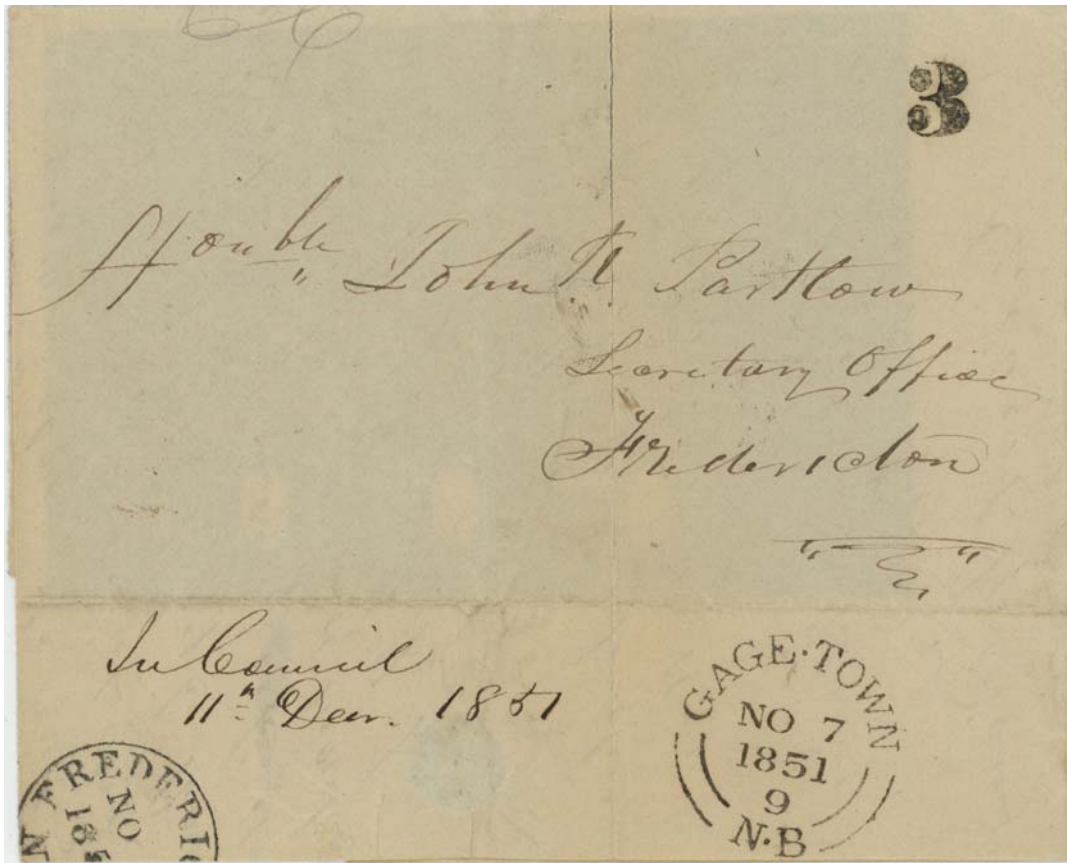 3
Honble John R. Partlow
Secretary Office
Fredericton
In Council
11th Decr. 1851
GAGE·TOWN
NO 7
1851
9
N·B
FREDERIC
NO
185